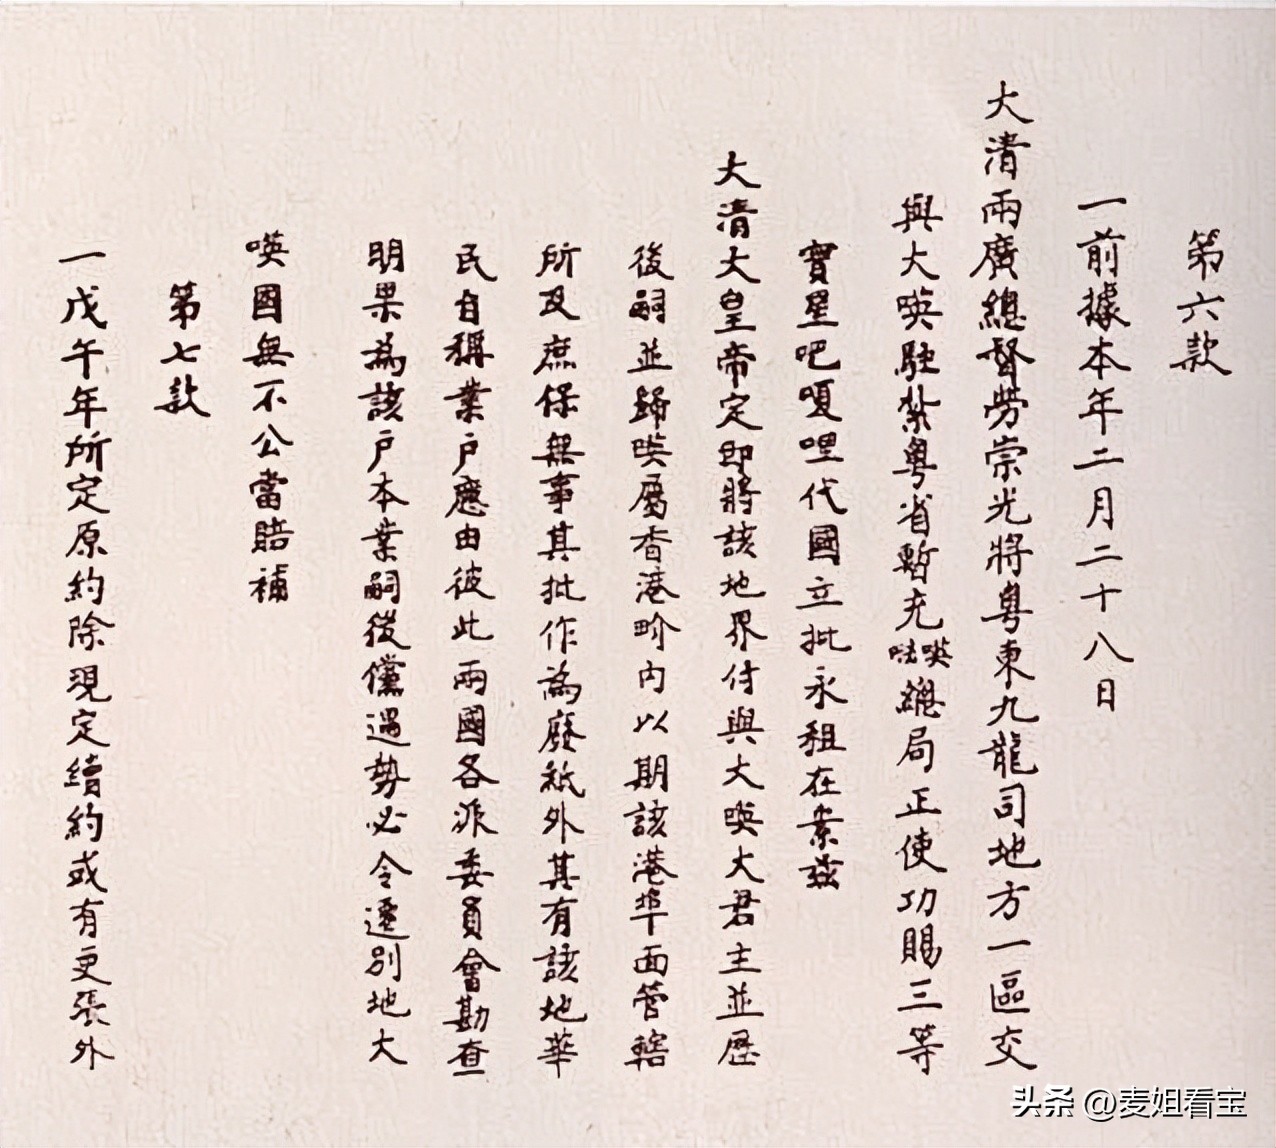 第六款
一前據本年二月二十八日
大清兩廣總督勞崇光將粵東九龍司地方一區交
與大𠸄駐紮粵省暫充𠸄㘕總局正使功賜三等
寶星吧嗄哩代國立批永租在案茲
大清大皇帝定即將該地界付與大𠸄大君主並歷
後嗣並歸𠸄屬香港界內以期該港埠面管轄
所及庶保無事其批作為廢紙外其有該地華
民自稱業戶應由彼此兩國各派委員會勘查
明果為該戶本業嗣後儻遇勢必令遷別地大
𠸄國無不公當賠補
第七款
一戊午年所定原約除現定續約或有更張外
头条 @麦姐看宝